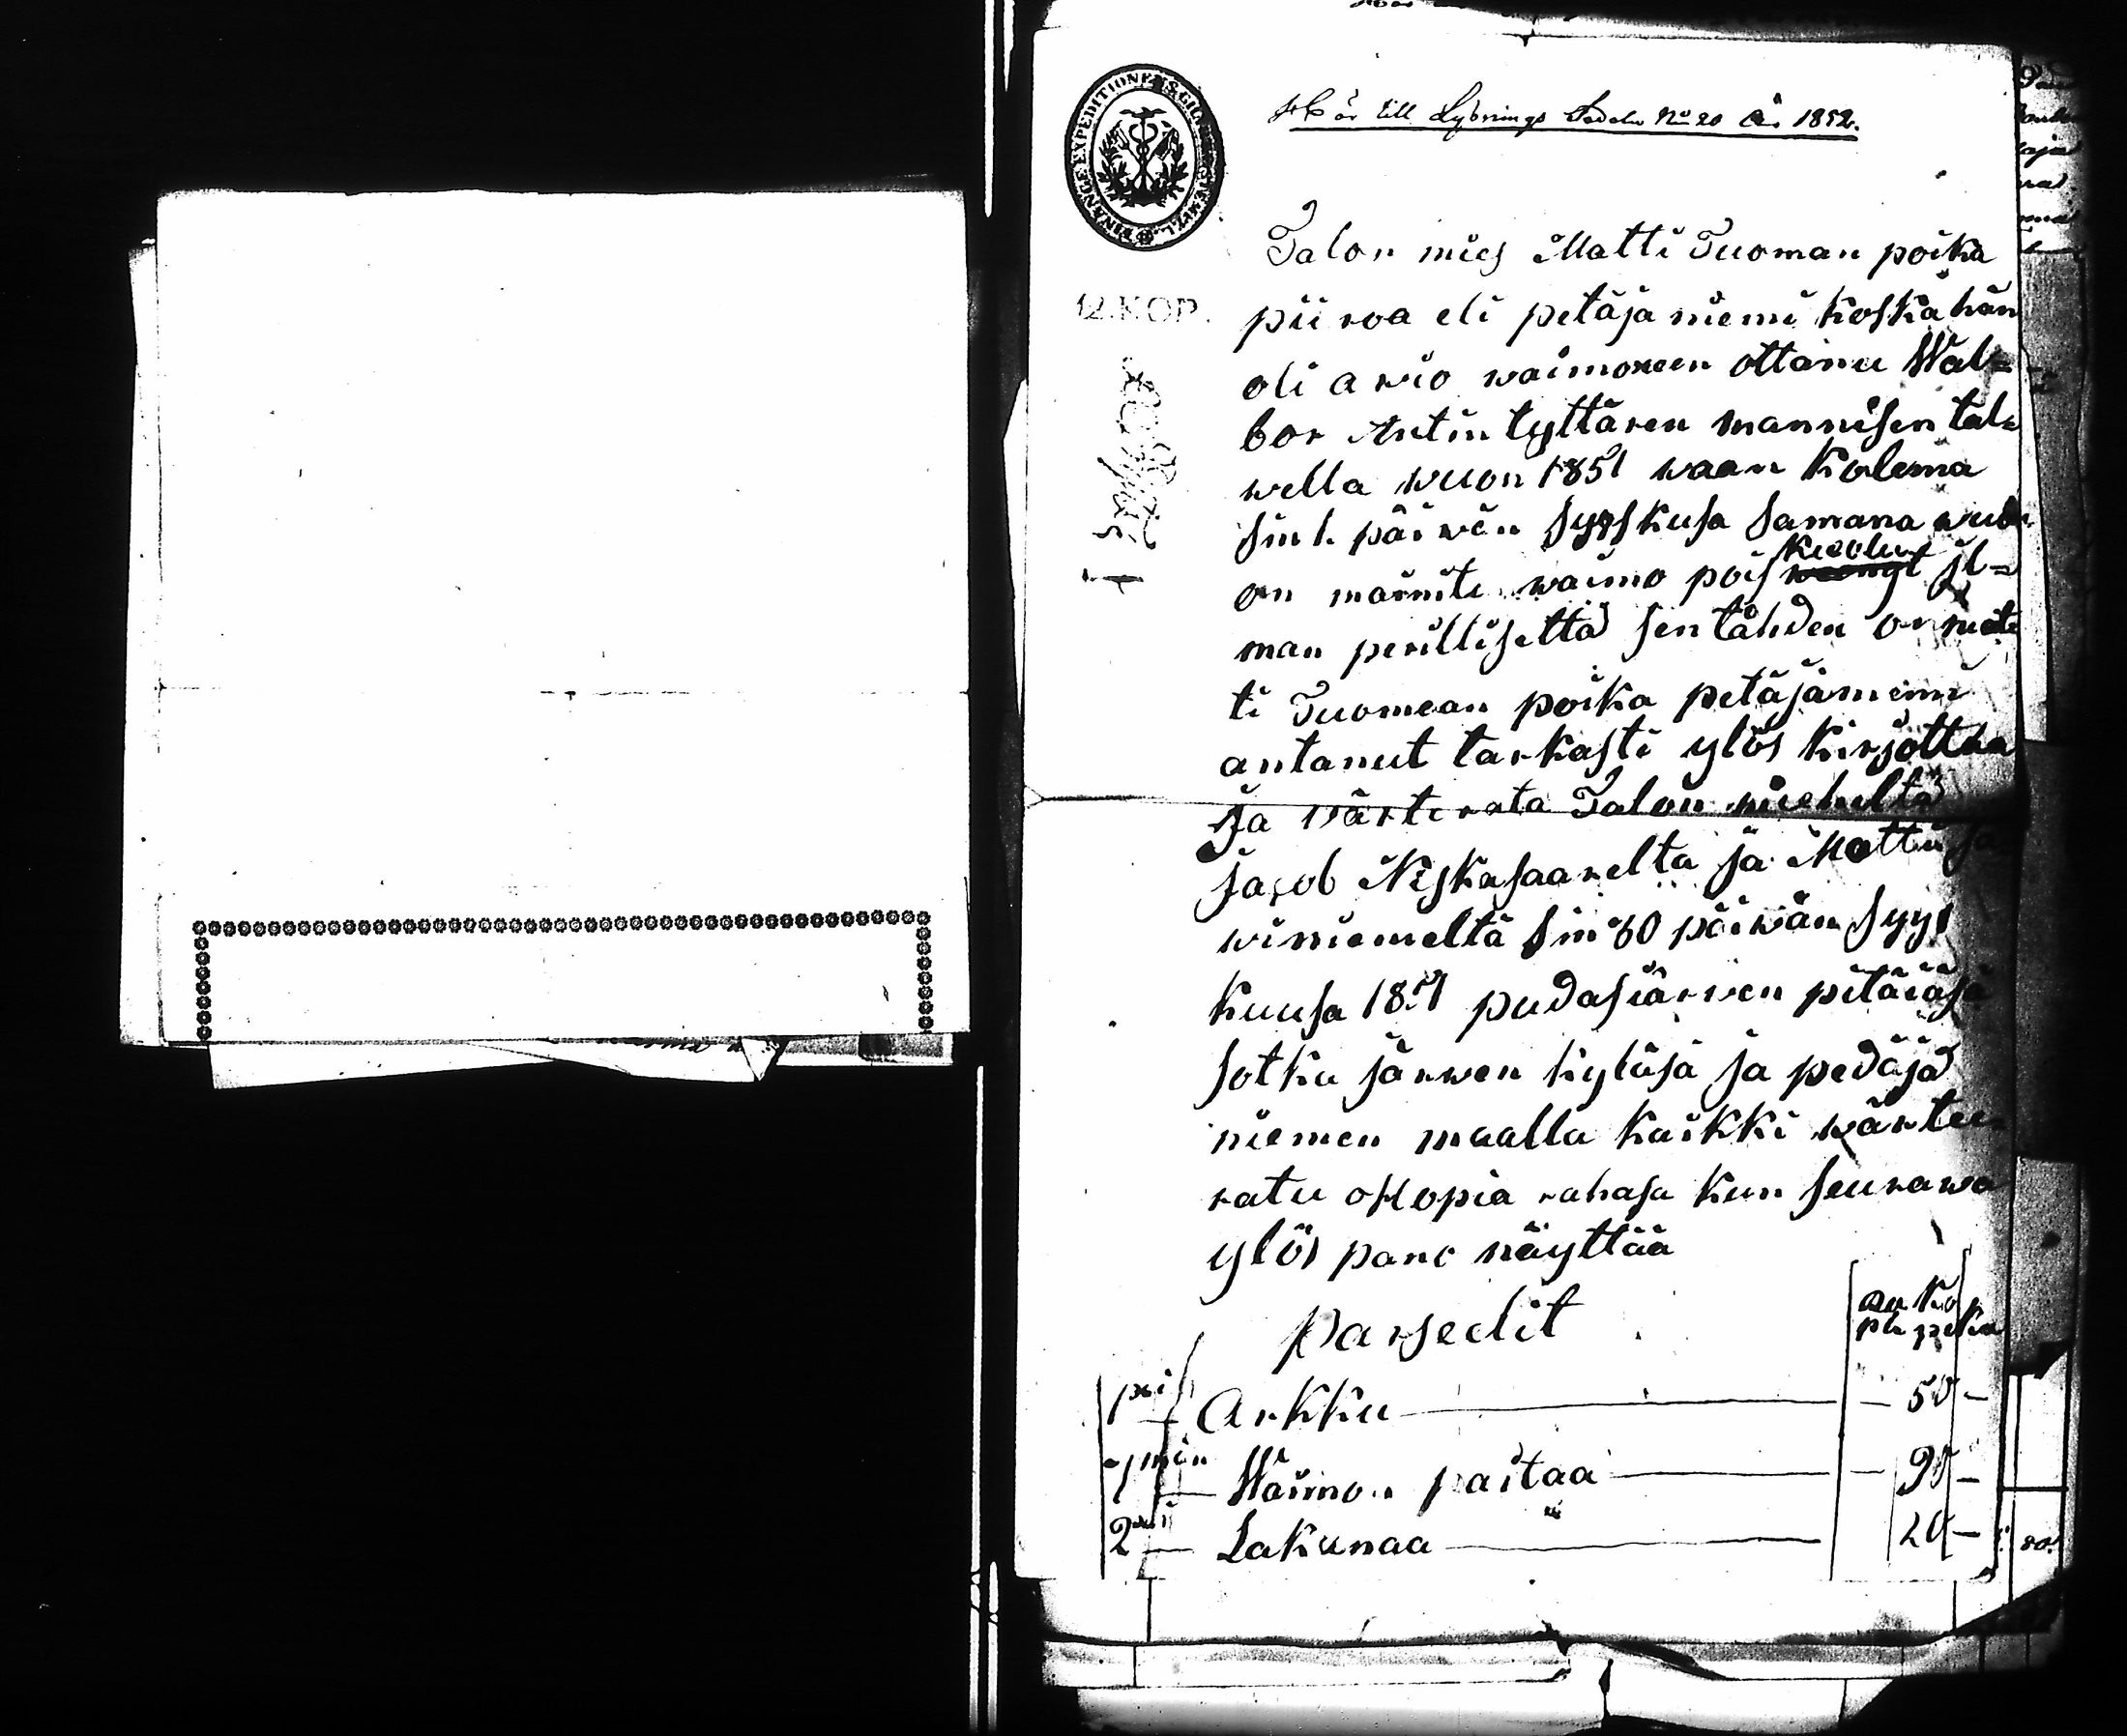 Hör till Lysnings Sedeln No 20 År 1852.
FINANCE EXPEDITIONENS
12. KOP.
Talon mies Matti Tuoman poika
piiroa eli petäjä niemi koska hän
oli a wio waimoxeen ottanu Wal=
bor Antin tyttären mannisen tal=
wella wuon 1851 waan Kolema
sin 1. päivän syyskusa samana wuon
on mainitu waimo pois kuolu il=
man perillisettä sentähden on mat
ti Tuomean poika petäjäniemi
antanut tarkasti ylös kirjottaa
ja värterata Talon mieheltä
Jacob Niskasaarelta ja Matti Sa=
winiemeltä sin 30 päiwän syys
kuusa 1851 pudasjärwen pitäjäsä
sotka järwen kyläsä ja pedäjä
niemen maalla kaikki wärtee
ratu Hopia rahasa kun seurawa
ylös pano näyttää
parsedit
ru Ko
pla peka
1 Arkku — 50 —
1 Waimon paitaa — 90 —
2 Lakanaa — 20 —